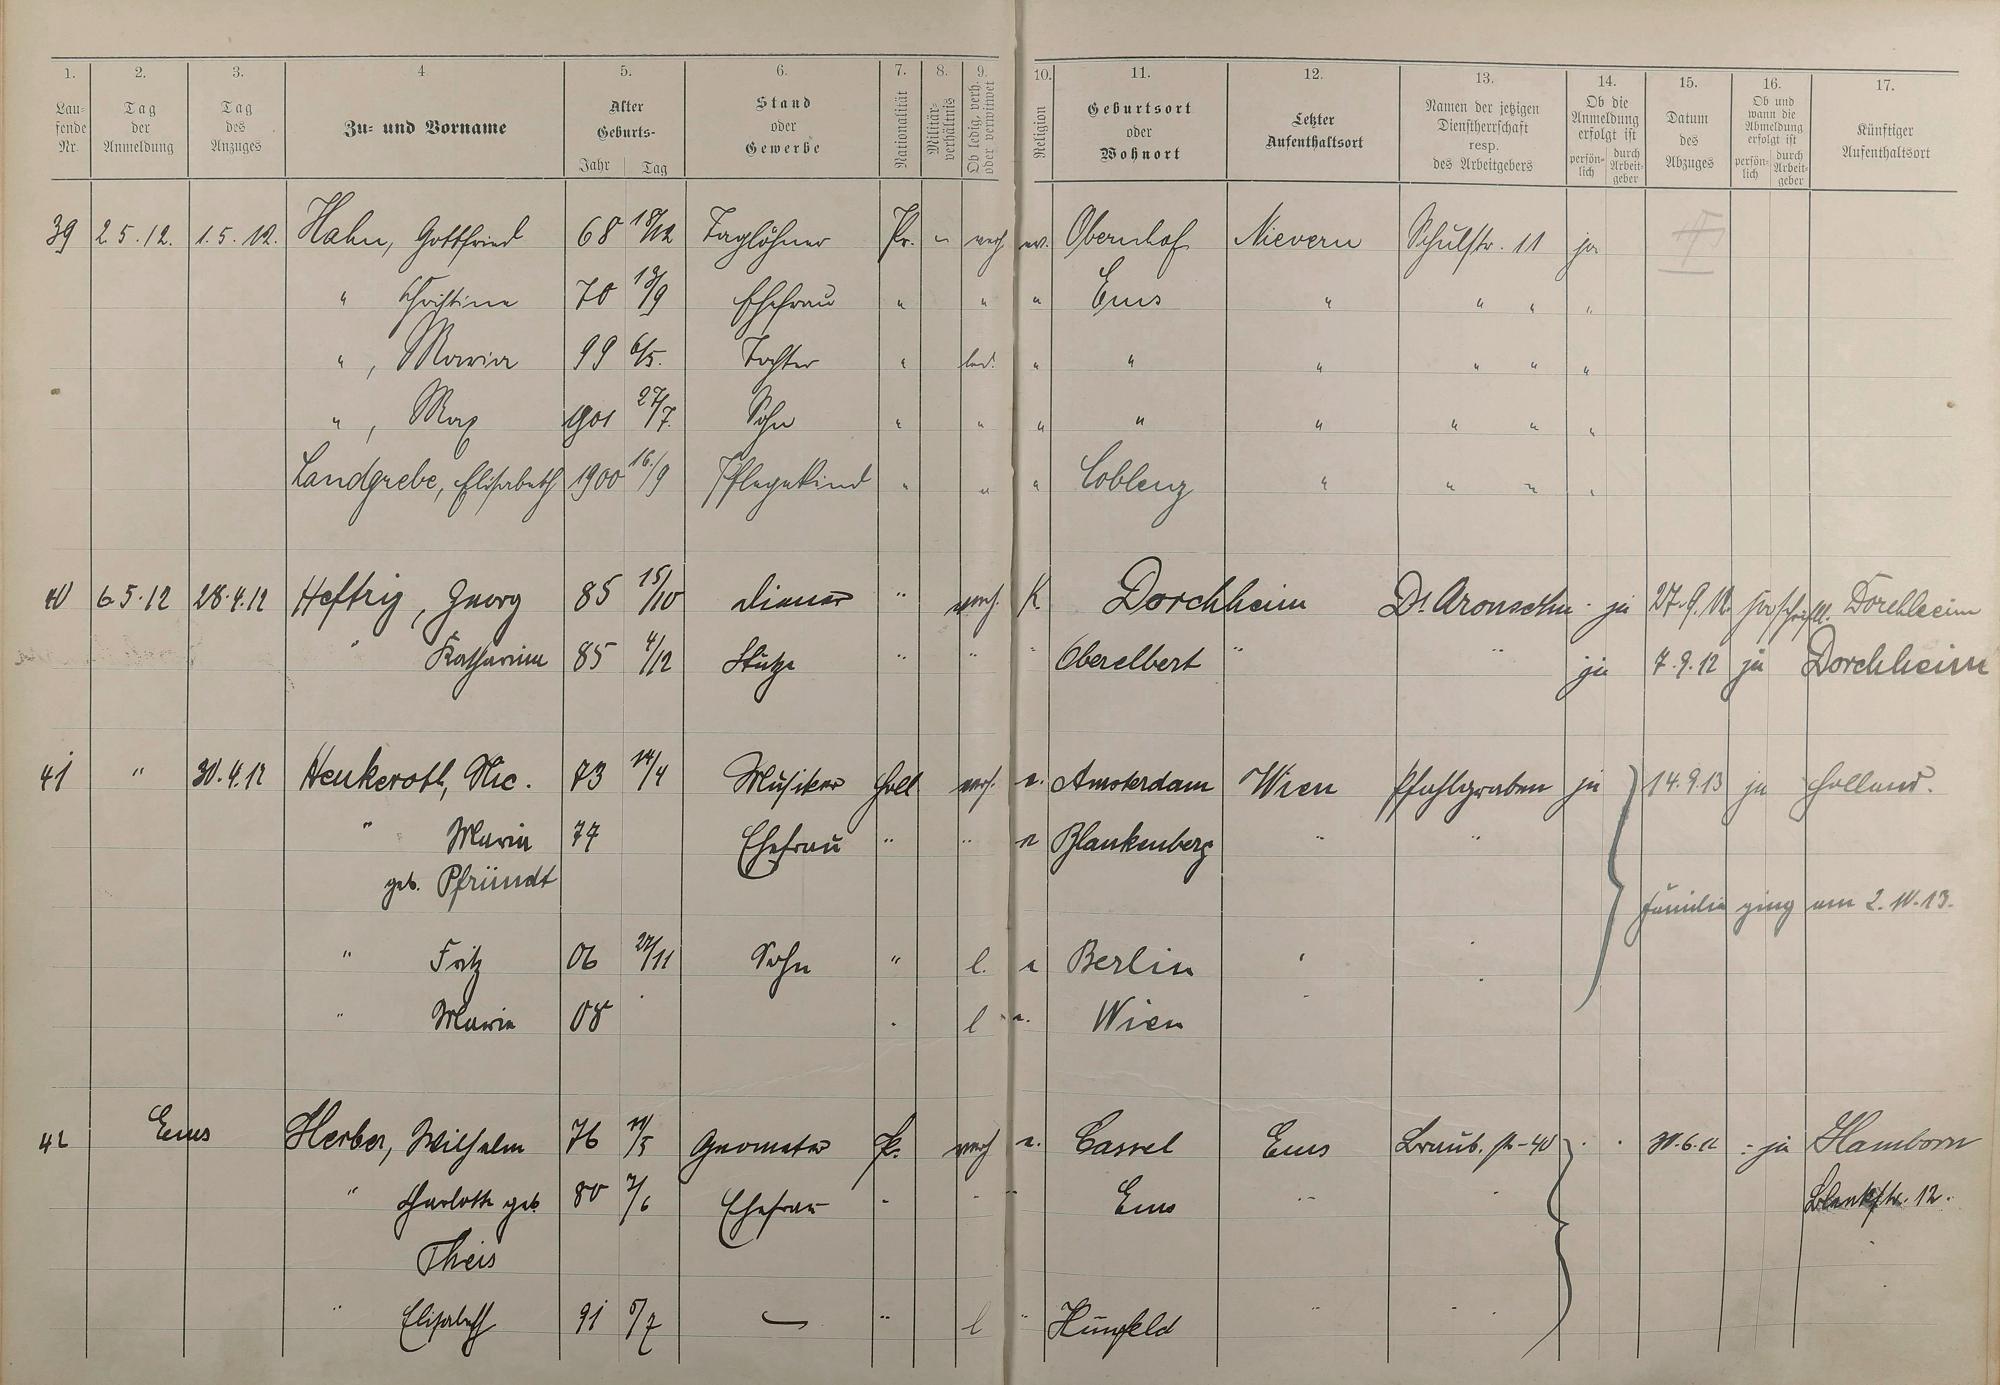 1. 2. 3. 4 5. 6. 7. 8. 9. 10. 11. 12. 13. 14. 15. 16. 17.
Laufende Nr.
Tag der Anmeldung
Tag des Anzuges
Zu- und Vorname
Alter Geburts- Jahr Tag
Stand oder Gewerbe
Nationalität
Militärverhältnis
Ob ledig, verh. oder verwitwet
Religion
Geburtsort oder Wohnort
Letzter Aufenthaltsort
Namen der jetzigen Dienstherrschaft resp. des Arbeitgebers
Ob die Anmeldung erfolgt ist persönlich durch Arbeitgeber
Datum des Abzuges
Ob und wann die Abmeldung erfolgt ist persönlich durch Arbeitgeber
Künftiger Aufenthaltsort
39 2.5.12. 1.5.12. Hahn, Gottfried 68 18/12 Taglöhner Pr. " verh. ev. Obernhof Nievern Schulstr. 11 ja
" Christine 70 13/9 Ehefrau " " " Ems " " " "
", Maria 99 6/5. Tochter " led. " " " " " "
", Max 901 27/7. Sohn " " " " " " " "
Landgrebe, Elisabeth 1900 16./9 Pflegekind " " " Coblenz " " " "
40 6.5.12 28.4.12 Heftrig, Georg 85 15/10 Diener " verh. K Dorchheim Dr. Aronsohn ja 27.9.12. ja schriftl. Dorchheim
" Katharina 85 4/12 Stütze " " " Oberelbert " " ja 7.9.12 ja Dorchheim
41 " 30.4.12 Henkeroth, Nic. 73 14/4 Musiker Holl verh. e. Amsterdam Wien Pfahlgraben ja 14.9.13 ja Holland.
" Maria 74 Ehefrau " " e Blankenberg " "
geb. Pfründt
Familie ging am 2.10.13.
" Fritz 06 27/11 Sohn " l. e Berlin " "
" Maria 08 " l e. Wien "
42 Ems Herber, Wilhelm 76 11/5 Geometer Pr. verh e. Cassel Ems Braub. str - 40 30.6.12 ja Hamborn
" Charlotte geb. 80 7/6 Ehefrau " " " Ems " " 12.
Theis
" Elisabeth 91 5/7 — " l " Hünfeld " "